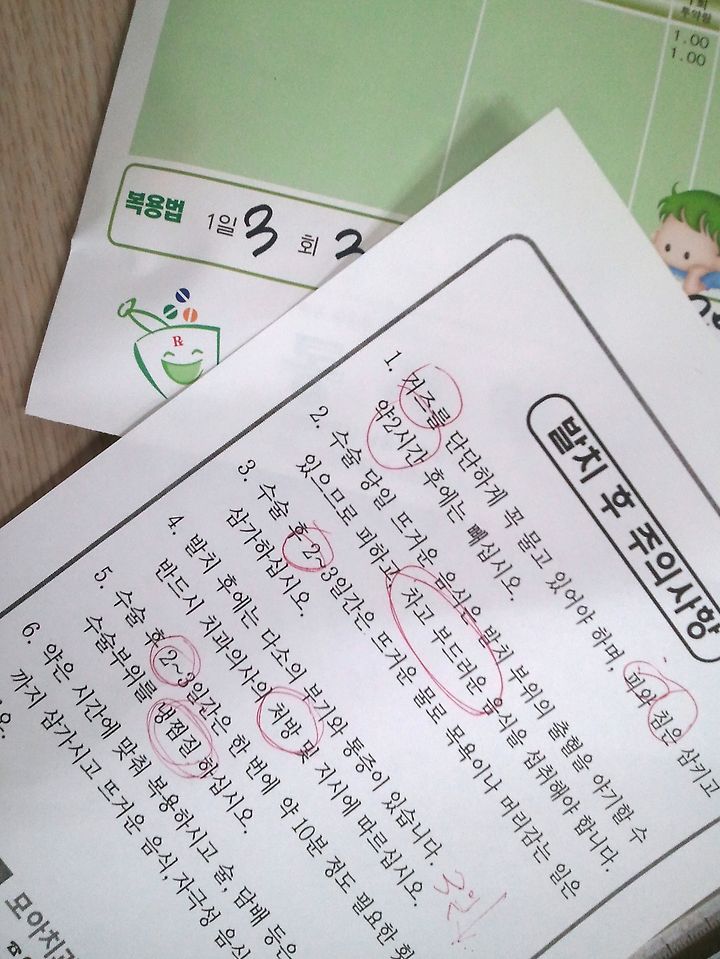 1회
투약량
1.00
1.00
복용법 1일 3 회
R
발치 후 주의사항
1. 거즈를 단단하게 꼭 물고 있어야 하며, 피와 침은 삼키고
약2시간 후에는 빼십시오.
2. 수술 당일 뜨거운 음식은 발치 부위의 출혈을 야기할 수
있으므로 피하고 차고 부드러운 음식을 섭취해야 합니다.
3. 수술 후 2~3일간은 뜨거운 물로 목욕이나 머리감는 일은
삼가하십시오.
4. 발치 후에는 다소의 붓기와 통증이 있습니다.
반드시 치과의사의 처방 및 지시에 따르십시오.
5. 수술 후 2~3일간은 한 번에 약 10분 정도 필요한 횟
수술부위를 냉찜질 하십시오.
6. 약은 시간에 맞춰 복용하시고 술, 담배 등은
까지 삼가시고 뜨거운 음식, 자극성 음식
3일
모아치과